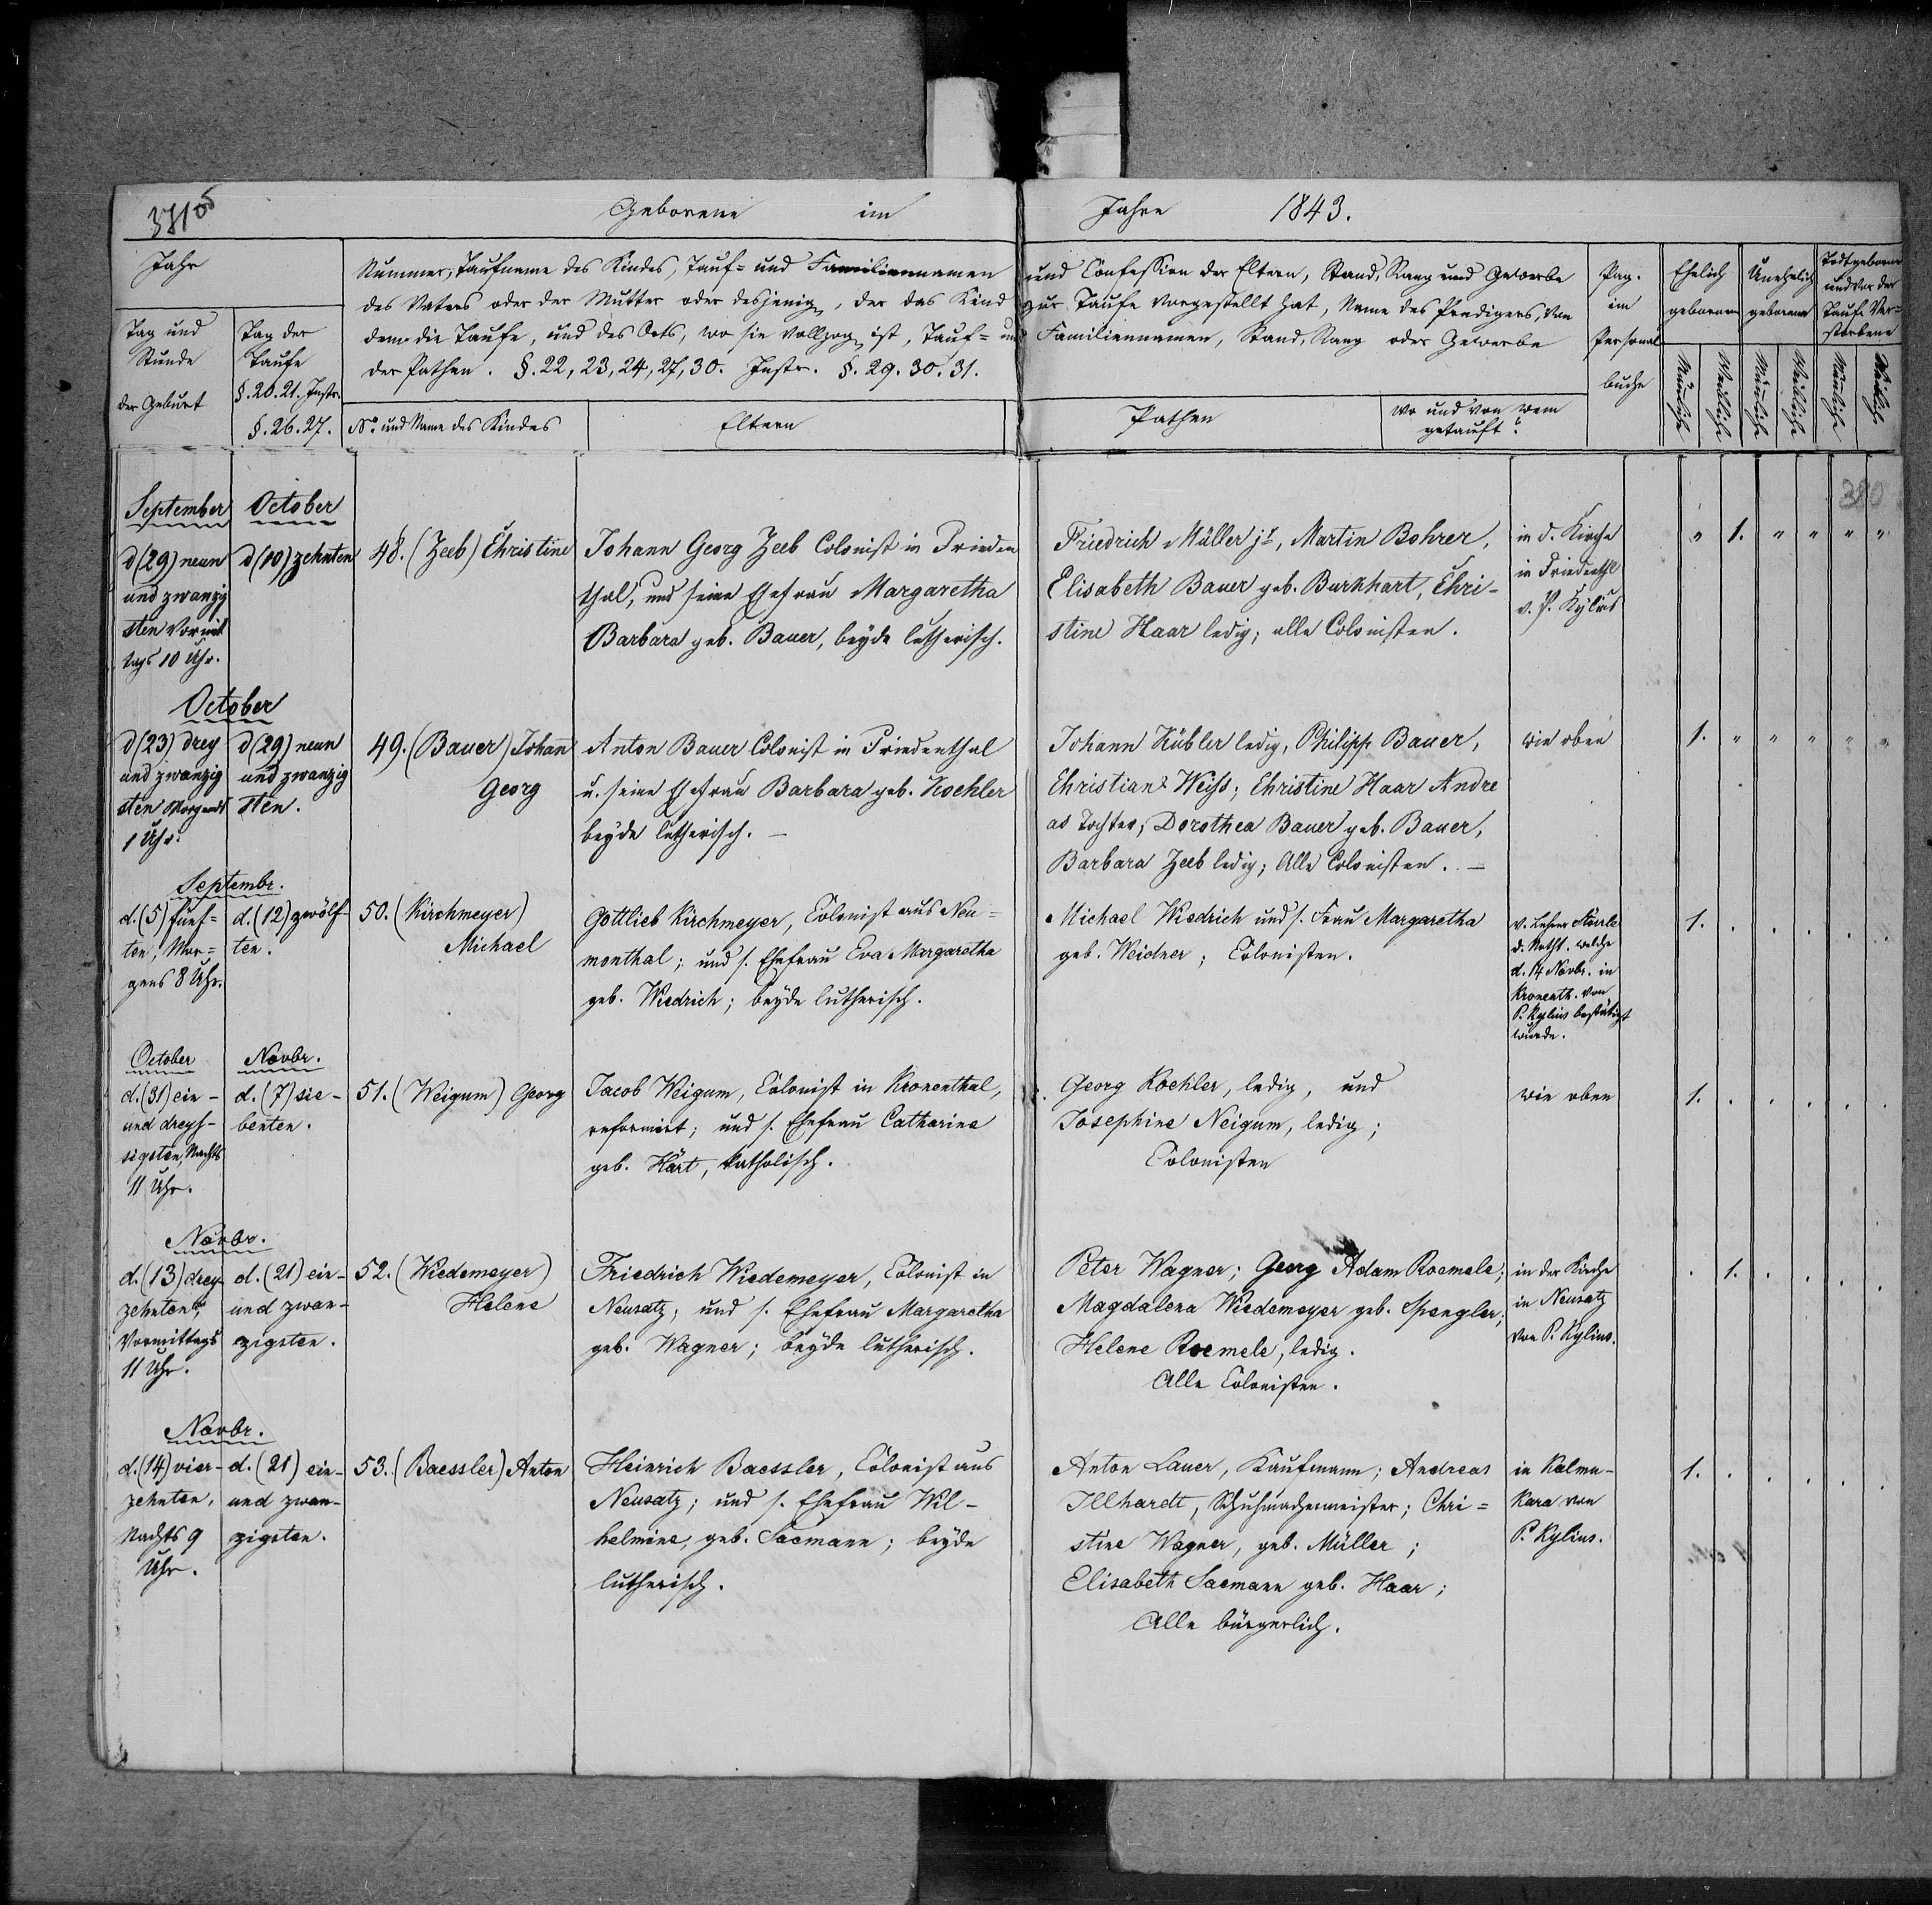 Geborene im Jahre 1843.
380
Jahr
Tag und
Stunde
der Geburt
Tag der
Taufe
§. 20. 21. Instr.
§. 26. 27.
Nummer, Taufname des Kindes, Tauf- und Familiennamen und Confession der Eltern, Stand, Rang und Gewerbe
des Vaters oder der Mutter oder desjenig, der das Kind zur Taufe vorgestellt hat, Name des Predigers, von
dem die Taufe, und des Orts, wo sie vollzog ist, Tauf- und Familiennamen, Stand, Rang oder Gewerbe
der Pathen. §. 22, 23, 24, 27, 30. Instr. §. 29. 30. 31.
No und Name des Kindes
Eltern
Pathen
wo und von wem
getauft?
Pag.
im
Personal
buche
Ehelich
geborene
Unehelich
geborene
Todtgeborene
und vor der
Taufe Ver-
storbene
Männliche
Weibliche
Männliche
Weibliche
Männliche
Weibliche
September
d (29) neun
und zwanzig
sten Vormit
tags 10 Uhr.
October
d (10) zehnten
48. (Zeeb) Christine
Johann Georg Zeeb Colonist in Frieden
thal, und seine Ehefrau Margaretha
Barbara geb. Bauer, beyde lutherisch.
Friedrich Müller jr, Martin Bohrer,
Elisabeth Bauer geb. Burkhart, Chri-
stine Haar ledig; alle Colonisten.
in d. Kirche
in Friedenthl
v. P. Kylius
" 1. " " " "
October
d (23) drey
und zwanzig
sten Morgends
1 Uhr.
d (29) neun
und zwanzig
sten.
49. (Bauer) Johann
Georg
Anton Bauer Colonist in Friedenthal
u. seine Ehefrau Barbara geb. Koehler
beyde lutherisch. —
Johann Kübler ledig, Philipp Bauer,
Christian Weiss; Christine Haar Andre
as Tochter, Dorothea Bauer geb. Bauer,
Barbara Zeeb ledig; Alle Colonisten. —
wie oben
1. " " " " "
Septembr.
d. (5) fünf-
ten, Mor-
gens 8 Uhr.
d. (12) zwölf-
ten.
50. (Kirchmeyer)
Michael
Gottlieb Kirchmeyer, Colonist aus Neu-
monthal; und s. Ehefrau Eva Margaretha
geb. Wiedrich; beyde lutherisch.
Michael Wiedrich und s. Frau Margaretha
geb. Weidner; Colonisten.
v. Lehrer
d. Notht. welche
d. 14 Novbr. in
Kronenth. von
P. Kylius bestätigt
wurde.
1. . . . . .
October
d. (31) ein-
und dreys-
sigsten, Nachts
11 Uhr.
Novbr.
d. (7) sie-
benten.
51. (Weigum) Georg
Jacob Weigum, Colonist in Kronenthal,
reformirt; und s. Ehefrau Catharina
geb. Härt, katholisch.
Georg Koehler, ledig, und
Josephine Neigum, ledig;
Colonisten
wie oben
1. . . . . .
Novbr.
d. (13) drey-
zehnten
Vormittags
11 Uhr.
d. (21) ein-
und zwan-
zigsten.
52. (Wiedemeyer)
Helene
Friedrich Wiedemeyer, Colonist in
Neusatz; und s. Ehefrau Margaretha
geb. Wagner; beyde lutherisch.
Peter Wagner; Georg Adam Roemele;
Magdalena Wiedemeyer geb. Spengler;
Helene Roemele, ledig.
Alle Colonisten.
in der Kirche
in Neusatz
von P. Kylius.
. 1. . . . .
Novbr.
d. (14) vier-
zehnten,
Nachts 9
Uhr.
d. (21) ein-
und zwan-
zigsten.
53. (Baessler) Anton
Heinrich Baessler, Colonist aus
Neusatz; und s. Ehefrau Wil-
helmine, geb. Saemann; beyde
lutherisch.
Anton Lauer, Kaufmann; Andreas
Illhardt, Schuhmachermeister; Chri-
stine Wagner, geb. Müller;
Elisabeth Saemann geb. Haar;
Alle bürgerlich.
in Kalmu-
kara von
P. Kylius.
1. . . . . .